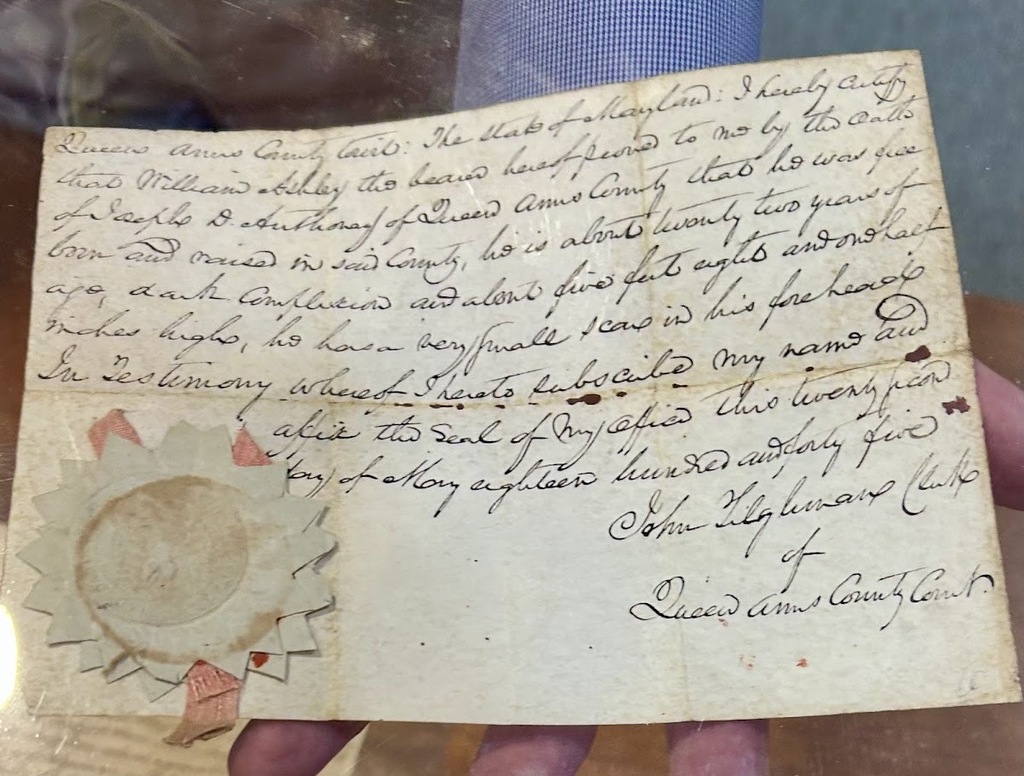 Queen Anns County Court: The State of Maryland: I hereby certify
that William Ashley the bearer hereof proved to me by the Oath
of Joseph D. Anthony of Queen Anns County that he was free
born and raised in said County, he is about twenty two years of
age, dark complexion and about five feet eight and one half
inches high, he has a very small scar in his forehead
In Testimony whereof I hereto subscribe my name and
affix the Seal of my office this twenty
day of May eighteen hundred and forty five
John Tilghman Clerk
of
Queen Anns County Court.